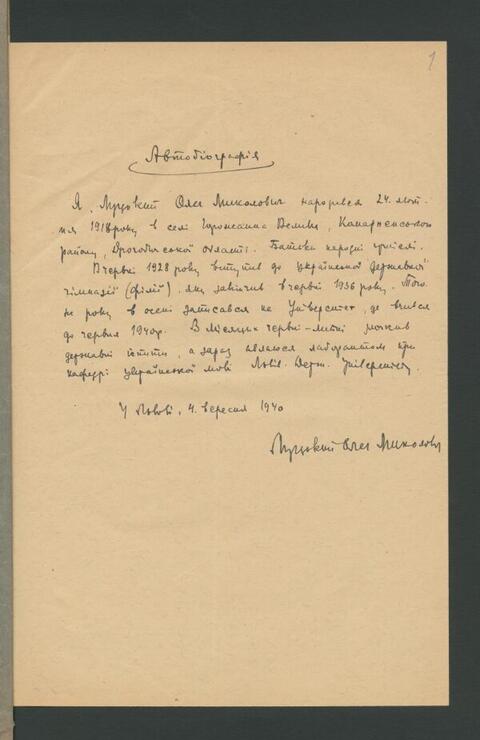 1
Автобіографія
Я, Луцький Олег Миколович народився 24. лют-
ня 1918 року в селі Горожанна Велика, Комарненського
району, Дрогобицької области. Батьки народні учителі.
В червні 1928 року вступив до української державної
гімназії (філії), яку закінчив в червні 1936 року. Того
же року в осені записався на Університет, де вчився
до червня 1940 р. В місяцях червні-липні зложив
державні іспити, а зараз являюся лаборантом при
кафедрі української мови Львів. Держ. Університету.
У Львові, 4. вересня 1940
Луцький Олег Миколович